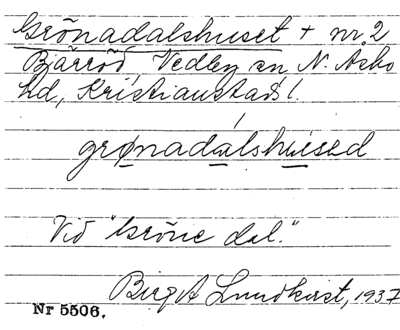 Grönadalshuset + nr 2
Bjärröd, Vedby sn N. Åsbo
hd, Kristianstads l.
grønadalshused
Vid "Gröne dal."
Birgit Lundkvist, 1937
Nr 5506.